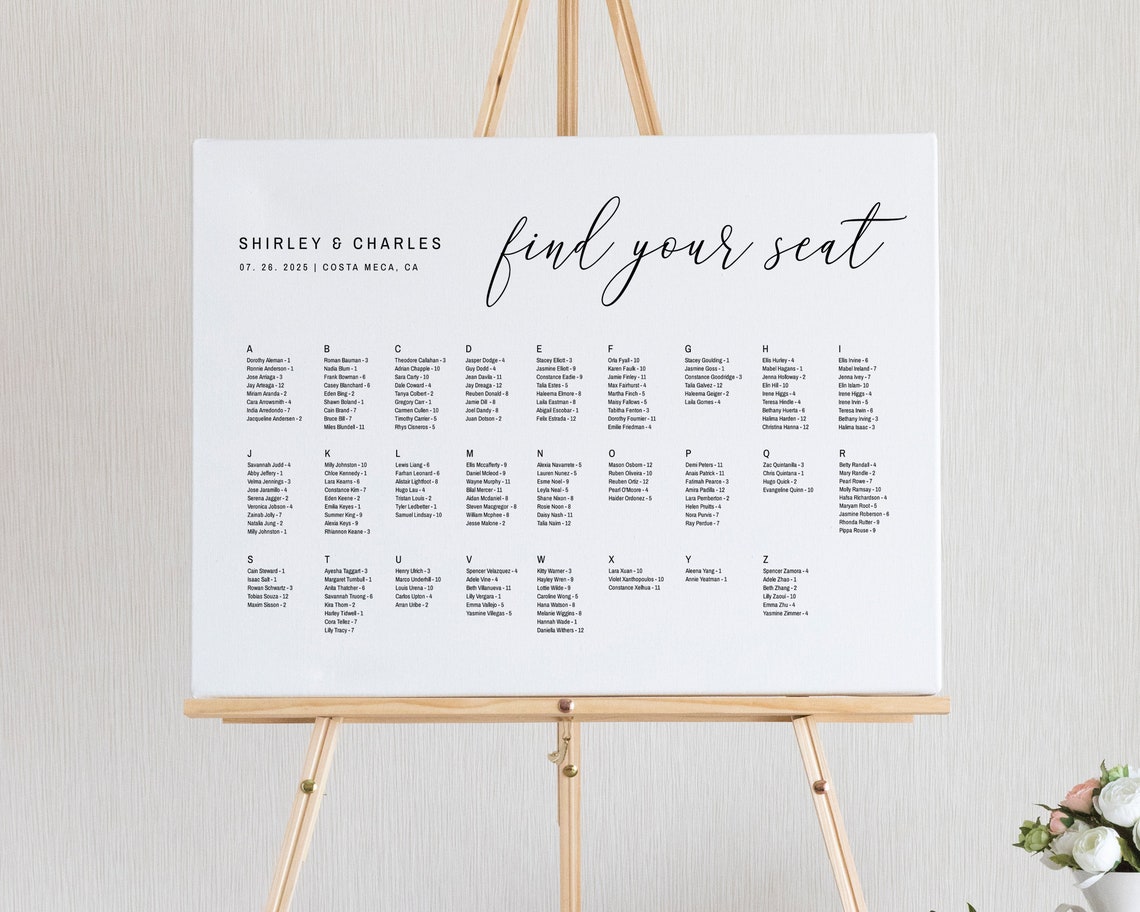 SHIRLEY & CHARLES
07. 26. 2025 | COSTA MECA, CA
find your seat
A
Dorothy Aleman - 1
Ronnie Anderson - 1
Jose Arriaga - 3
Jay Arteaga - 12
Miriam Aranda - 2
Cara Arrowsmith - 4
India Arredondo - 7
Jacqueline Andersen - 2
B
Roman Bauman - 3
Nadia Blum - 1
Frank Bowman - 6
Casey Blanchard - 6
Eden Bing - 2
Shawn Boland - 1
Cain Brand - 7
Bruce Bill - 7
Miles Blundell - 11
C
Theodore Callahan - 3
Adrian Chapple - 10
Sara Carty - 10
Dale Coward - 4
Tanya Colbert - 2
Gregory Carr - 1
Carmen Cullen - 10
Timothy Carrier - 5
Rhys Cisneros - 5
D
Jasper Dodge - 4
Guy Dodd - 4
Jean Davila - 11
Jay Dreaga - 12
Reuben Donald - 8
Jamie Dill - 8
Joel Dandy - 8
Juan Dotson - 2
E
Stacey Elliott - 3
Jasmine Elliott - 9
Constance Eadie - 9
Talia Estes - 5
Haleema Elmore - 8
Laila Eastman - 8
Abigail Escobar - 1
Felix Estrada - 12
F
Orla Fyall - 10
Karen Faulk - 10
Jamie Finley - 11
Max Fairhurst - 4
Martha Finch - 5
Maisy Fallows - 5
Tabitha Fenton - 3
Dorothy Fournier - 11
Emilie Friedman - 4
G
Stacey Goulding - 1
Jasmine Goss - 1
Constance Goodridge - 3
Talia Galvez - 12
Haleema Geiger - 2
Laila Gomes - 4
H
Ellis Hurley - 4
Mabel Hagans - 1
Jenna Holloway - 2
Elin Hill - 10
Irene Higgs - 4
Teresa Hindle - 4
Bethany Huerta - 6
Halima Harden - 12
Christina Hanna - 12
I
Ellis Irvine - 6
Mabel Ireland - 7
Jenna Ivey - 7
Elin Islam- 10
Irene Higgs - 4
Irene Irvin - 5
Teresa Irwin - 6
Bethany Irving - 3
Halima Isaac - 3
J
Savannah Judd - 4
Abby Jeffery - 1
Velma Jennings - 3
Jose Jaramillo - 4
Serena Jagger - 2
Veronica Jobson - 6
Zainab Jolly - 7
Natalia Jung - 2
Milly Johnston - 1
K
Milly Johnston - 10
Chloe Kennedy - 1
Lara Kearns - 6
Constance Kim - 7
Eden Keene - 2
Emilia Keyes - 1
Summer King - 9
Alexia Keys - 9
Rhiannon Keane - 3
L
Lewis Liang - 6
Farhan Leonard - 6
Alistair Lightfoot - 8
Hugo Lau - 4
Tristan Louis - 2
Tyler Ledbetter - 1
Samuel Lindsay - 10
M
Ellis Mccafferty - 9
Daniel Mcleod - 9
Wayne Murphy - 11
Bilal Mercer - 11
Aidan Mcdaniel - 8
Steven Macgregor - 8
William Mcphee - 8
Jesse Malone - 2
N
Alexia Navarrete - 5
Lauren Nunez - 5
Esme Noel - 9
Leyla Neal - 5
Shane Nixon - 8
Rosie Noon - 8
Daisy Nash - 11
Talia Naim - 12
O
Mason Osborn - 12
Ruben Oliveira - 10
Reuben Ortiz - 12
Pearl O'Moore - 4
Haider Ordonez - 5
P
Demi Peters - 11
Anais Patrick - 11
Fatimah Pearce - 3
Amira Padilla - 12
Lara Pemberton - 2
Helen Pruitts - 4
Nora Purvis - 7
Ray Perdue - 7
Q
Zac Quintanilla - 3
Chris Quintana - 1
Hugo Quick - 2
Evangeline Quinn - 10
R
Betty Randall - 4
Mary Randle - 2
Pearl Rowe - 7
Molly Ramsay - 10
Hafsa Richardson - 4
Maryam Root - 5
Jasmine Roberson - 6
Rhonda Rutter - 9
Pippa Rouse - 9
S
Cain Steward - 1
Isaac Salt - 1
Rowan Schwartz - 3
Tobias Souza - 12
Maxim Sisson - 2
T
Ayesha Taggart - 3
Margaret Turnbull - 1
Anita Thatcher - 6
Savannah Truong - 6
Kira Thom - 2
Harley Tidwell - 1
Cora Tellez - 7
Lilly Tracy - 7
U
Henry Ulrich - 3
Marco Underhill - 10
Louis Urena - 10
Carlos Upton - 4
Arran Uribe - 2
V
Spencer Velazquez - 4
Adele Vine - 4
Beth Villanueva - 11
Lilly Vergara - 1
Emma Vallejo - 5
Yasmine Villegas - 5
W
Kitty Warner - 3
Hayley Wren - 9
Lottie Wilde - 9
Caroline Wong - 5
Hana Watson - 8
Melanie Wiggins - 8
Hannah Wade - 1
Daniella Withers - 12
X
Lara Xuan - 10
Violet Xanthopoulos - 10
Constance Xelhua - 11
Y
Aleena Yang - 1
Annie Yeatman - 1
Z
Spencer Zamora - 4
Adele Zhao - 1
Beth Zhang - 2
Lilly Zaoui - 10
Emma Zhu - 4
Yasmine Zimmer - 4